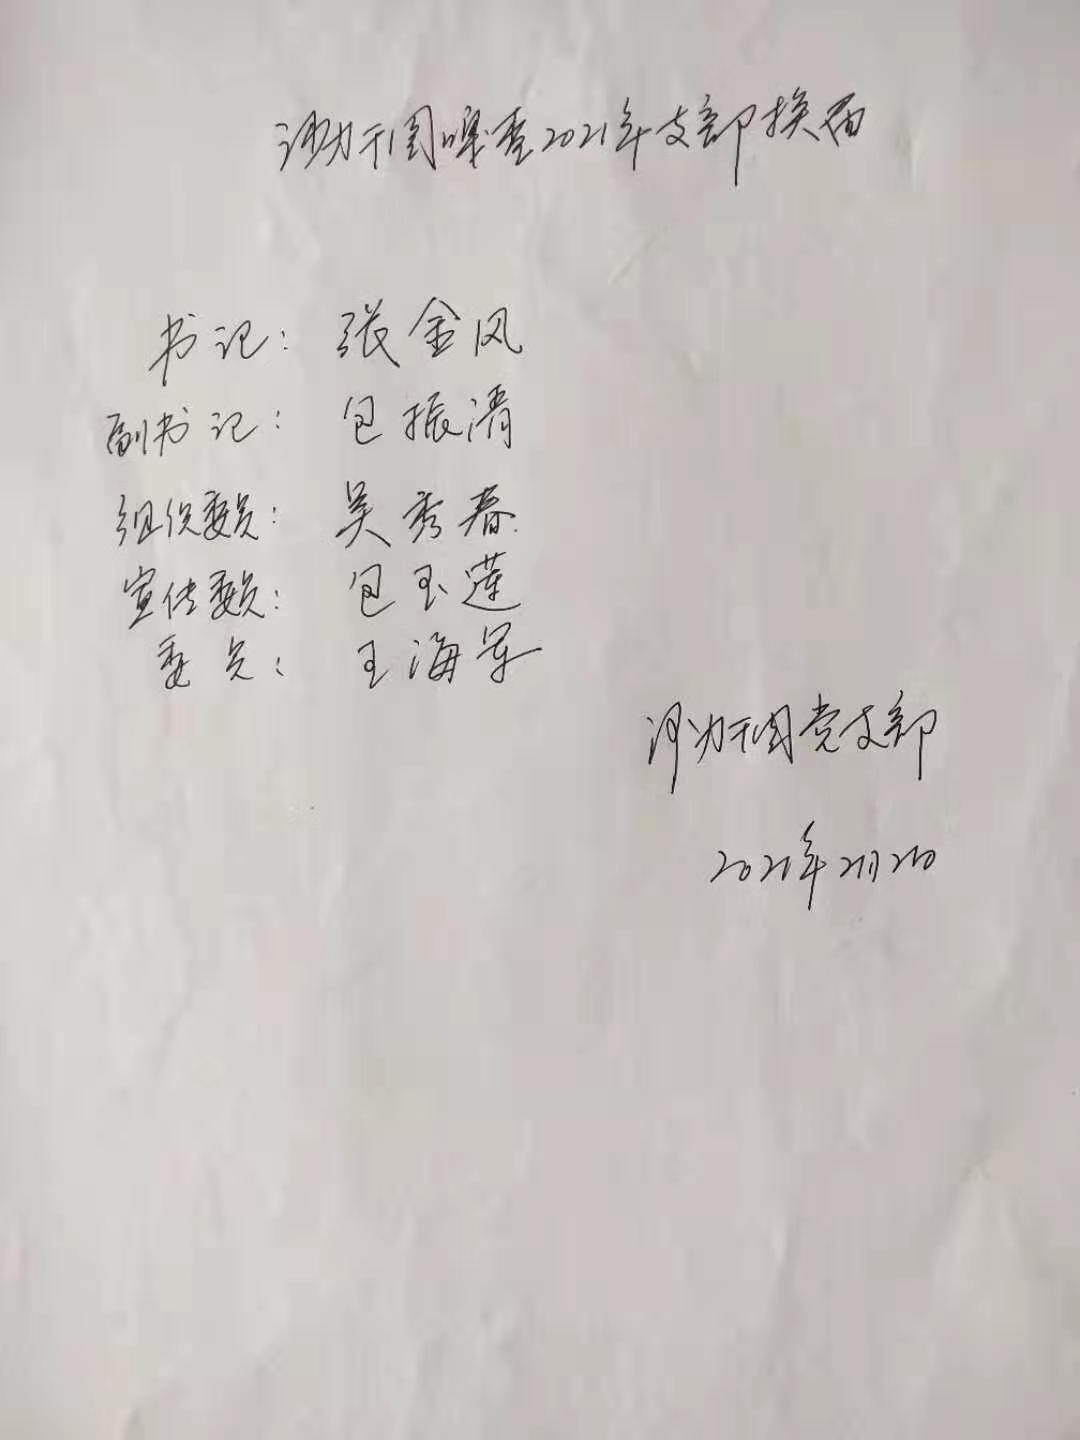 沙力干图嘎查2021年支部换届
书记：张金凤
副书记：包振清
组织委员：吴秀春
宣传委员：包玉莲
委员：王海军
沙力干图党支部
2021年2月2日